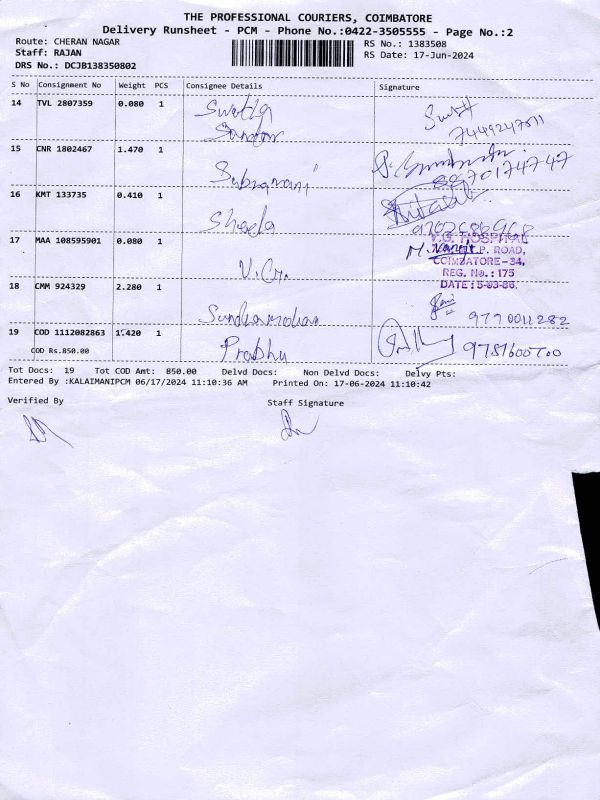 THE PROFESSIONAL COURIERS, COIMBATORE
Delivery Runsheet - PCM - Phone No.:0422-3505555 - Page No.:2
Route: CHERAN NAGAR
RS No.: 1383508
Staff: RAJAN
RS Date: 17-Jun-2024
DRS No.: DCJB138350802
S No Consignment No Weight PCS Consignee Details Signature
14 TVL 2807359 0.080 1
Sundar
15 CNR 1802467 1.470 1 Subramani
16 KMT 133735 0.410 1 Sheela
17 MAA 108595901 0.080 1 V.G.
V.G. HOSPITAL
P. ROAD,
COIMBATORE-34.
REG. No.: 175
DATE: 5-03-86.
18 CMM 924329 2.280 1 Sundharmohan
19 COD 1112082863 1.420 1 Prabhu
COD Rs.850.00
Tot Docs: 19 Tot COD Amt: 850.00 Delvd Docs: Non Delvd Docs: Delvy Pts:
Entered By :KALAIMANIPCM 06/17/2024 11:10:36 AM Printed On: 17-06-2024 11:10:42
Verified By Staff Signature